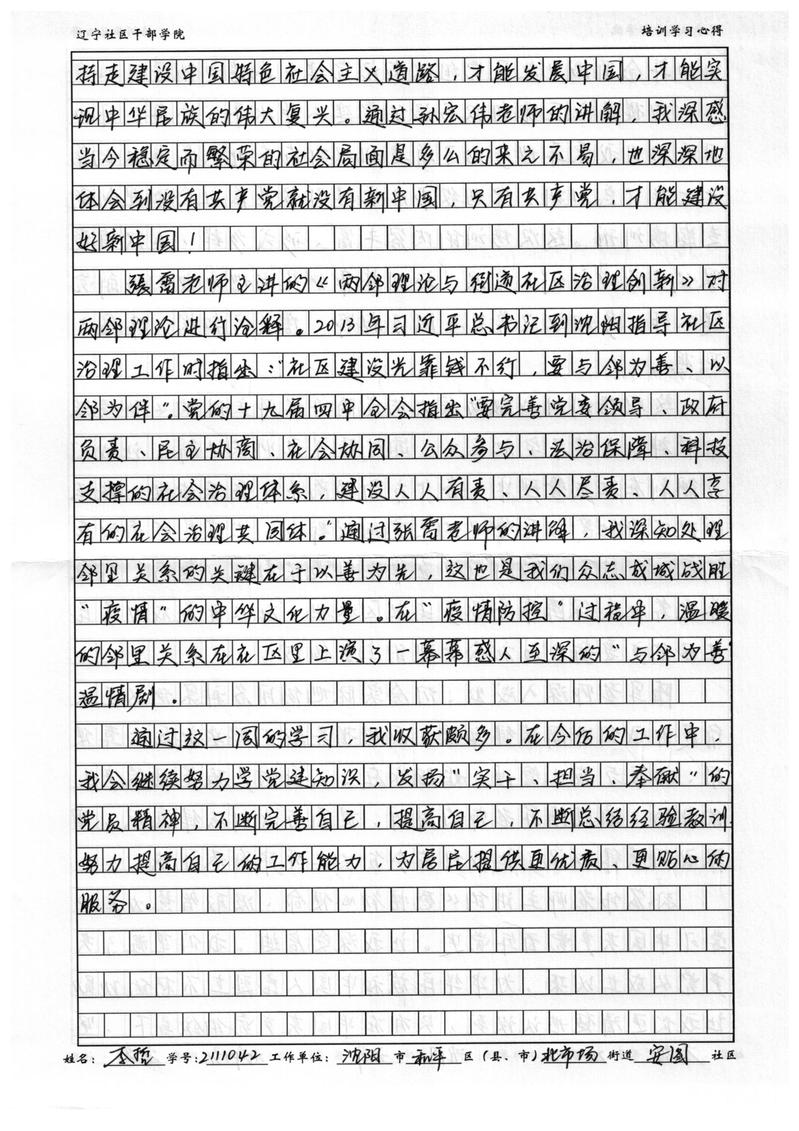 辽宁社区干部学院 培训学习心得
持走建设中国特色社会主义道路，才能发展中国，才能实
现中华民族的伟大复兴。通过孙宏伟老师的讲解，我深感
当今稳定而繁荣的社会局面是多么的来之不易，也深深地
体会到没有共产党就没有新中国，只有共产党，才能建设
好新中国！
张雷老师主讲的《两邻理论与街道社区治理创新》对
两邻理论进行诠释。2013年习近平总书记到沈阳指导社区
治理工作时指出：“社区建设光靠钱不行，要与邻为善、以
邻为伴”。党的十九届四中全会指出“要完善党委领导、政府
负责、民主协商、社会协同、公众参与、法治保障、科技
支撑的社会治理体系 建设人人有责、人人尽责、人人享
有的社会治理共同体。”通过张雷老师的讲解，我深知处理
邻里关系的关键在于以善为先，这也是我们众志成城战胜
“疫情”的中华文化力量。在“疫情防控”过程中，温暖
的邻里关系在社区里上演了一幕幕感人至深的“与邻为善”
温情剧。
通过这一周的学习，我收获颇多。在今后的工作中，
我会继续努力学党建知识，发扬“实干、担当、奉献”的
党员精神，不断完善自己，提高自己，不断总结经验教训
努力提高自己的工作能力，为居民提供更优质、更贴心的
服务。
姓名：李哲 学号：2111042 工作单位：沈阳 市 和平 区（县、市）北市场 街道 安图 社区